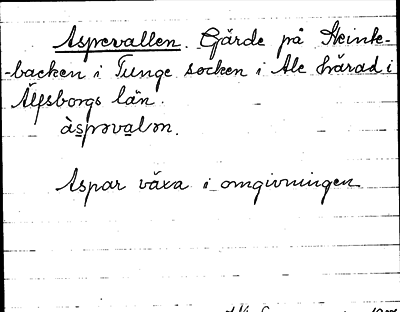 Aspevallen. Gärde på Steinke-
-backen i Tunge socken i Ale härad i
Älfsborgs län.
àspəvalən.
Aspar växa i omgivningen